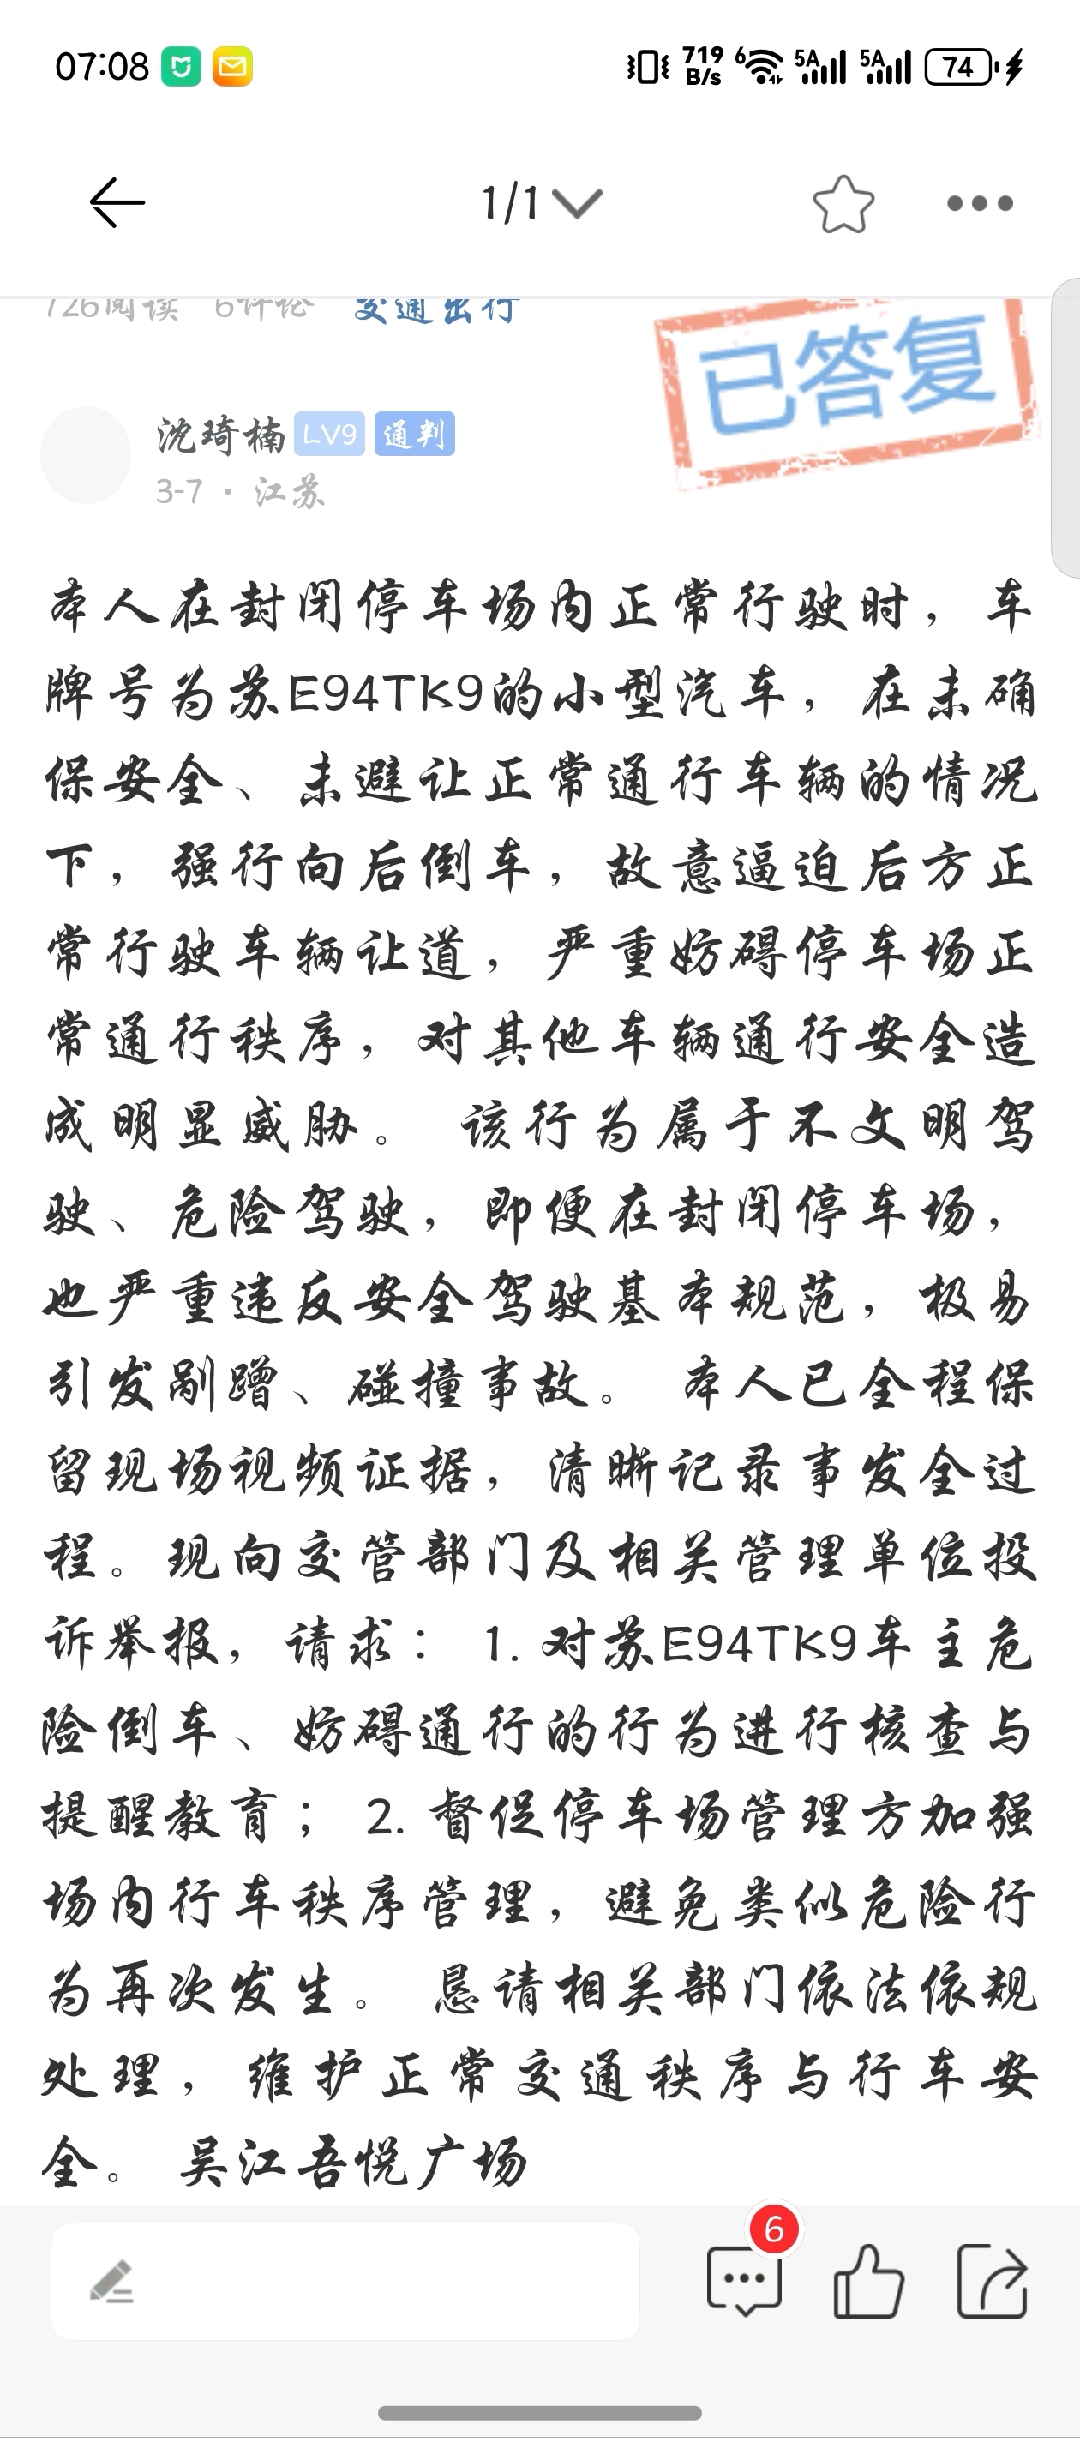 07:08
719 B/s
6
5A
5A
74
1/1
726阅读 6评论 交通出行
已答复
沈琦楠 LV9 通判
3-7 · 江苏
本人在封闭停车场内正常行驶时，车
牌号为苏E94TK9的小型汽车，在未确
保安全、未避让正常通行车辆的情况
下，强行向后倒车，故意逼迫后方正
常行驶车辆让道，严重妨碍停车场正
常通行秩序，对其他车辆通行安全造
成明显威胁。 该行为属于不文明驾
驶、危险驾驶，即便在封闭停车场，
也严重违反安全驾驶基本规范，极易
引发剐蹭、碰撞事故。 本人已全程保
留现场视频证据，清晰记录事发全过
程。现向交管部门及相关管理单位投
诉举报，请求： 1. 对苏E94TK9车主危
险倒车、妨碍通行的行为进行核查与
提醒教育； 2. 督促停车场管理方加强
场内行车秩序管理，避免类似危险行
为再次发生。 恳请相关部门依法依规
处理，维护正常交通秩序与行车安
全。 吴江吾悦广场
6